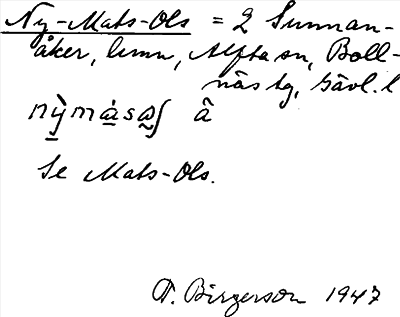 Ny-Mats-Ols = 2 Sunnan-
åker, hmn, Alfta sn, Boll-
näs tg, Gävl. l
â
Se Mats-Ols.
T. Birgerson 1947